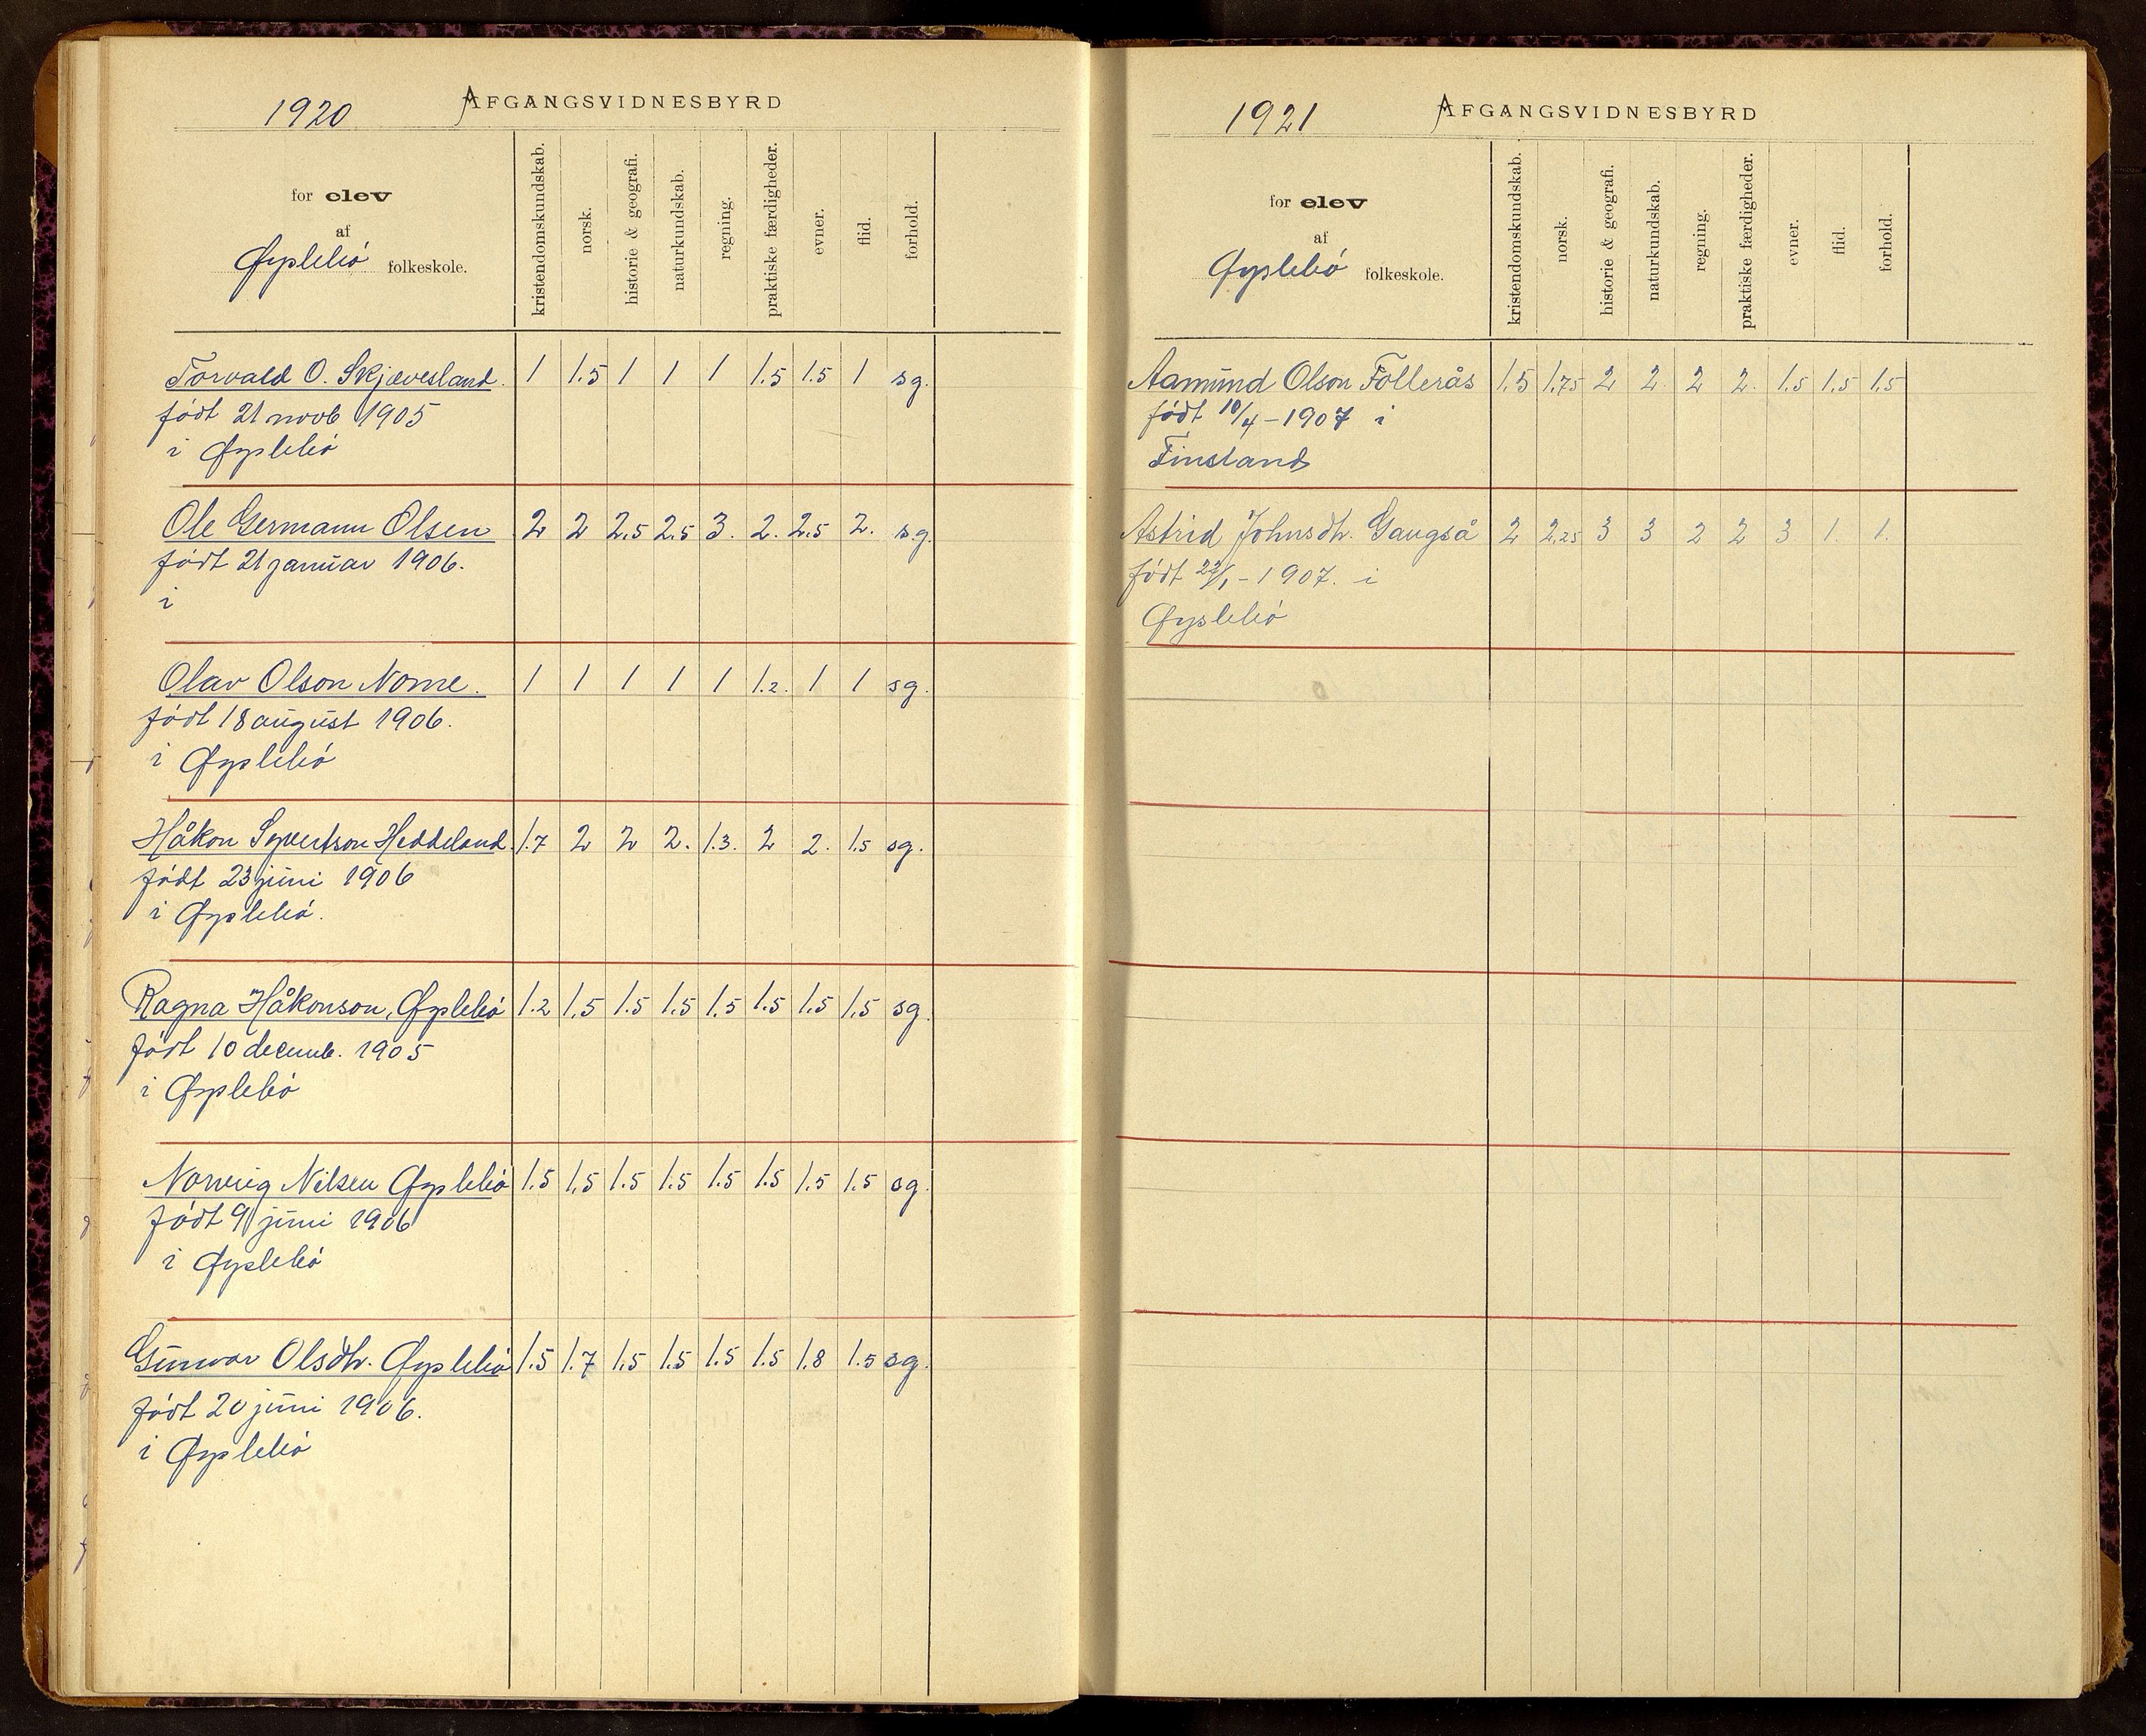 1920 AFGANGSVIDNESBYRD
for elev
af
Øyslebö folkeskole.
kristendomskundskab. norsk. historie & geografi. naturkundskab. regning. praktiske færdigheder. evner. flid. forhold.
Torvald O. Skjævesland. 1 1.5 1 1 1 1.5 1.5 1 sg.
födt 21 novb 1905
i Øyslebö
Ole Germann Olsen 2 2 2.5 2.5 3. 2. 2.5 2. s.g.
födt 21 januar 1906.
i
Olav Olson Nome. 1 1 1 1 1 1.2. 1 1 sg.
födt 18 august 1906.
i Øyslebö
Håkon Syvertson Heddeland. 1.7 2 2 2. 1.3. 2 2. 1.5 sg.
födt 23 juni 1906
i Øyslebö.
Ragna Håkonson, Øyslebö 1.2 1.5 1.5 1.5 1.5 1.5 1.5 1.5 sg.
födt 10 decemb. 1905
i Øyslebö
Norvig Nilsen Øyslebö 1.5 1.5 1.5 1.5 1.5 1.5 1.5 1.5 sg.
födt 9 juni 1906
i Øyslebö
Gunvor Olsdtr. Øyslebö 1.5 1.7 1.5 1.5 1.5 1.5 1.8 1.5 sg.
födt 20 juni 1906.
i Øyslebö
1921 AFGANGSVIDNESBYRD
for elev
af
Øyslebö folkeskole.
kristendomskundskab. norsk. historie & geografi. naturkundskab. regning. praktiske færdigheder. evner. flid. forhold.
Aamund Olson Follerås 1.5 1.75 2 2 2 2. 1.5 1.5 1.5
födt 10/4 - 1907 i
Finsland
Astrid Johnsdtr. Gaugså 2 2.25 3 3 2 2 3 1. 1.
födt 22/1 - 1907. i
Øyslebö